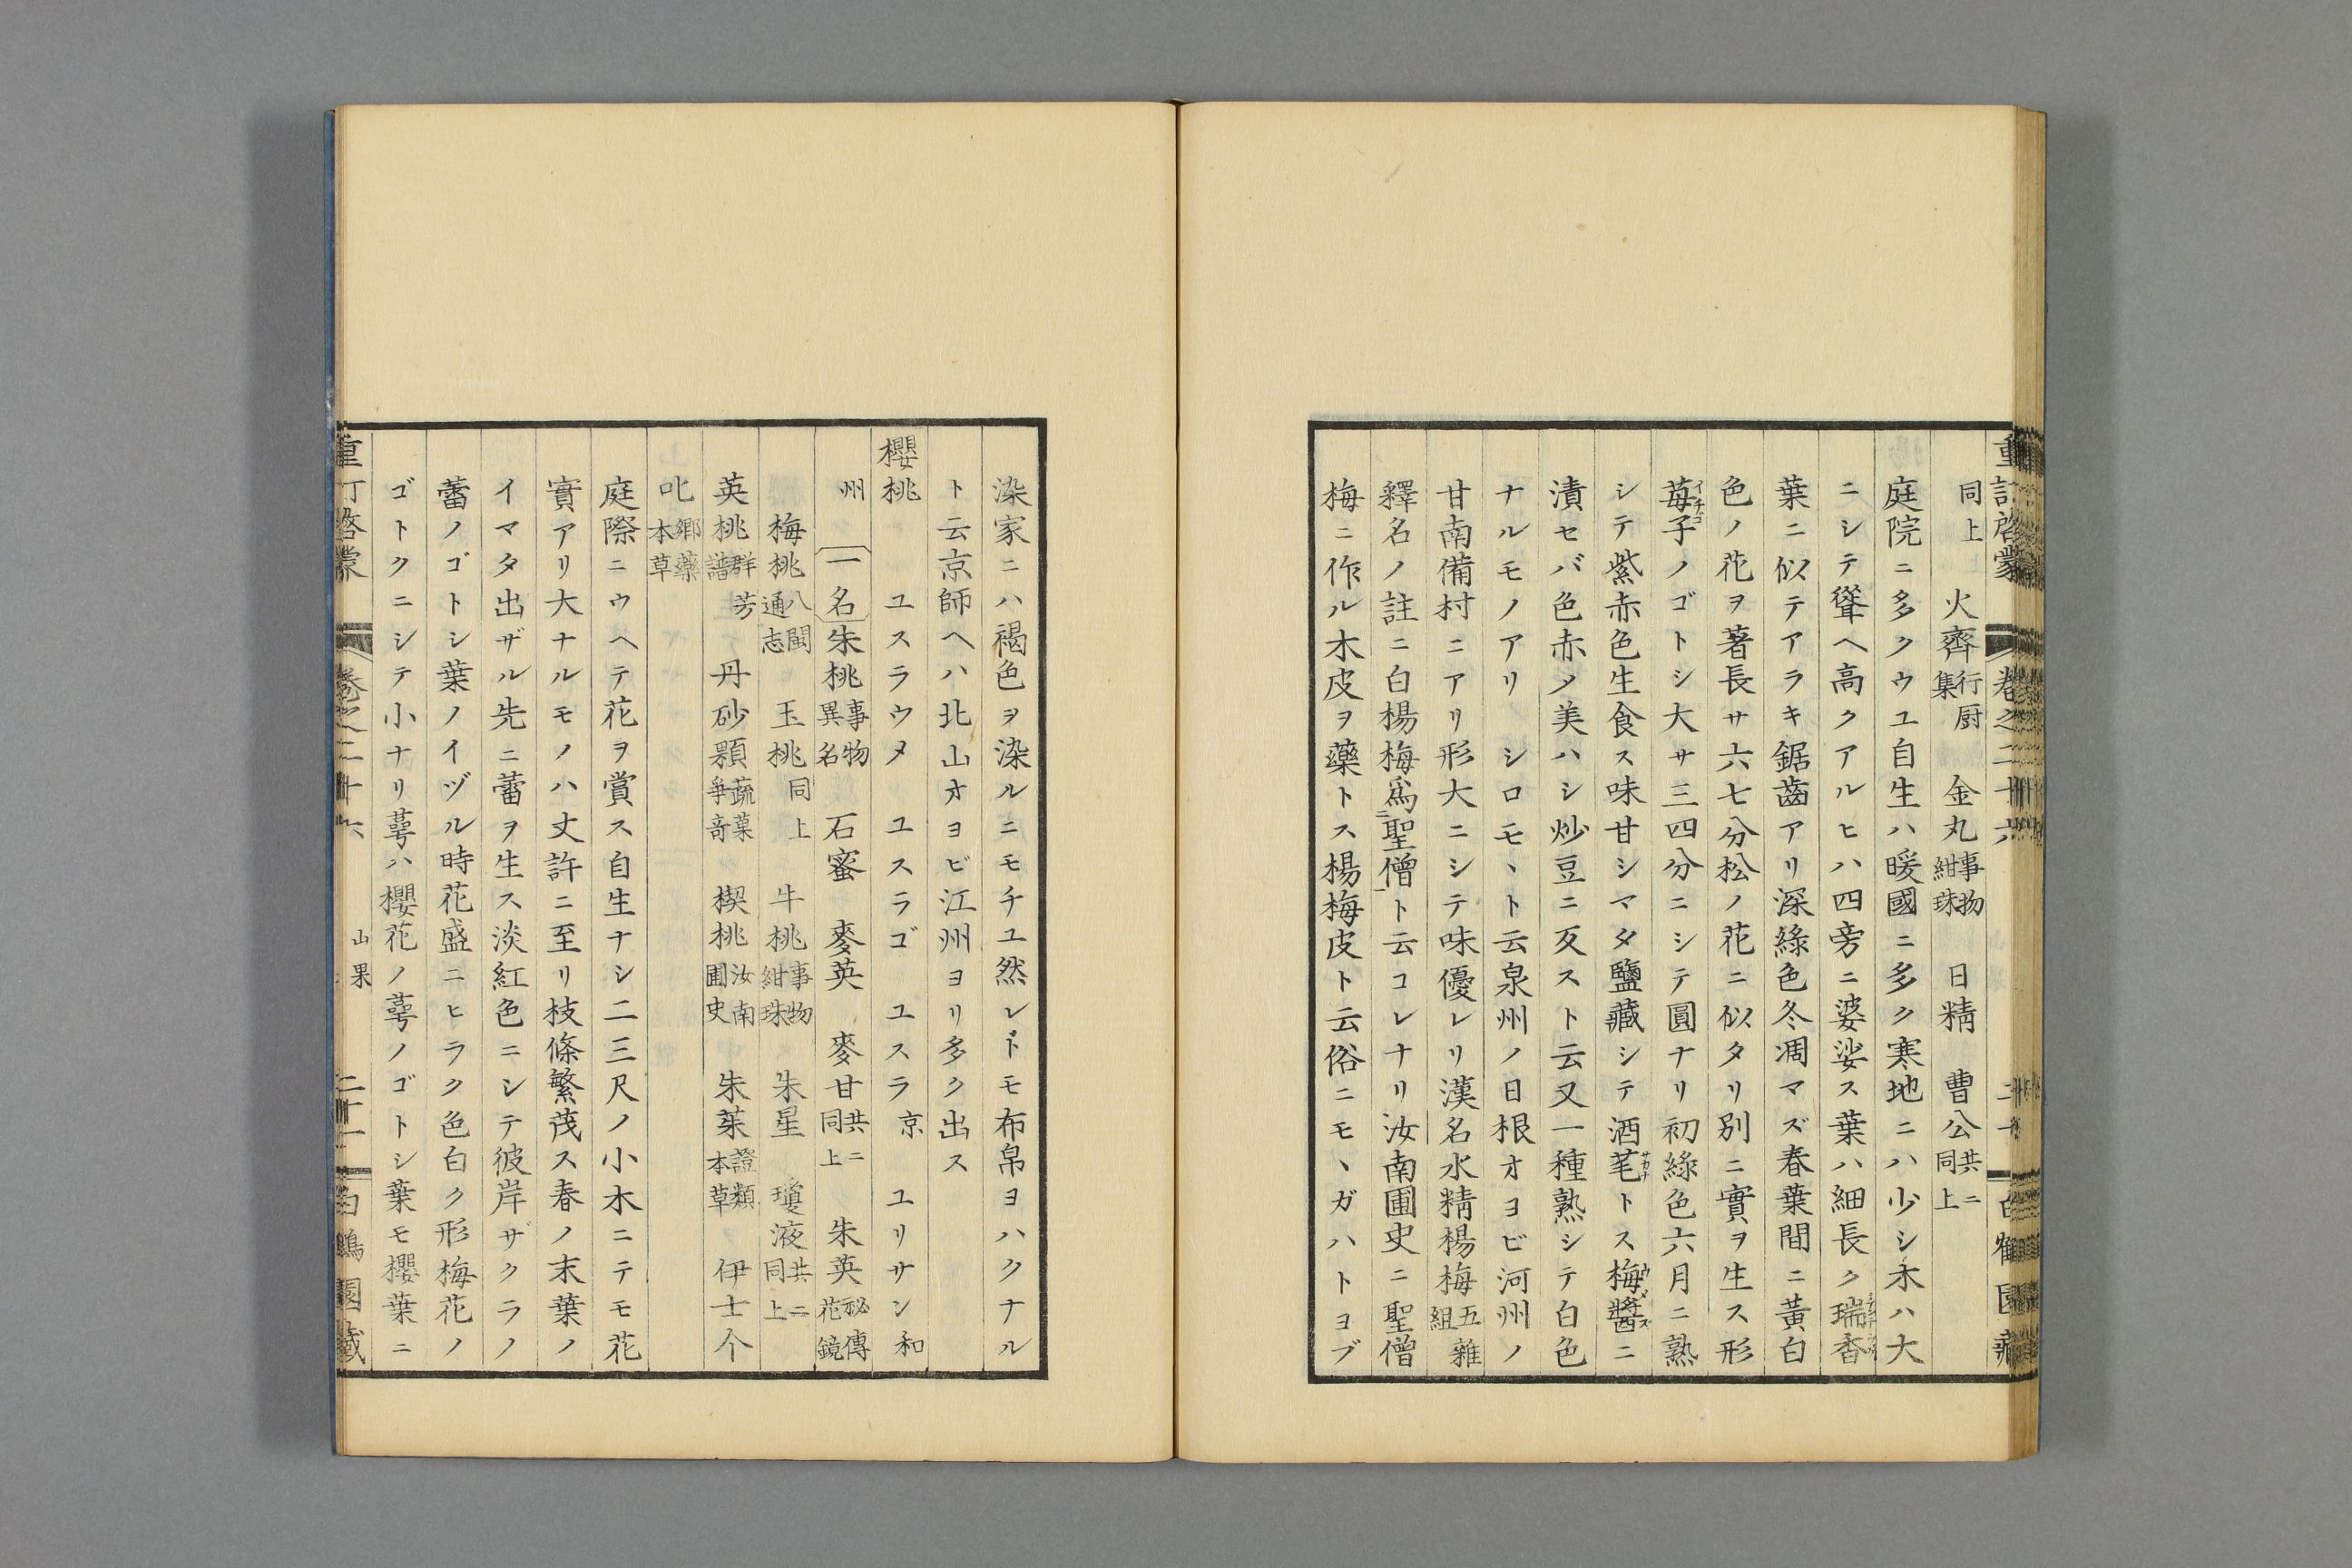 同上　火齊行厨集　金丸事物紺珠　日精　曹公共ニ同上
庭院ニ多クウユ自生ハ暖國ニ多ク寒地ニハ少シ木ハ大
ニシテ聳ヘ高クアルヒハ四旁ニ婆娑ス葉ハ細長ク瑞香
葉ニ似テアラキ鋸齒アリ深綠色冬凋マズ春葉間ニ黃白
色ノ花ヲ著長サ六七分松ノ花ニ似タリ別ニ實ヲ生ス形
苺子イチゴノゴトシ大サ三四分ニシテ圓ナリ初綠色六月ニ熟
シテ紫赤色生食ス味甘シマタ鹽藏シテ酒茖サカナトス梅醬ウメズニ
漬セバ色赤メ美ハシ炒豆ニ反スト云又一種熟シテ白色
ナルモノアリ　シロモヽト云泉州ノ日根オヨビ河州ノ
甘南備村ニアリ形大ニシテ味優レリ漢名水精楊梅五雜組
釋名ノ註ニ白楊梅爲ニ聖僧一ト云コレナリ汝南圃史ニ聖僧
梅ニ作ル木皮ヲ藥トス楊梅皮ト云俗ニモヽガハトヨブ
染家ニハ褐色ヲ染ルニモチユ然レドモ布帛ヨハクナル
ト云京師ヘハ北山オヨビ江州ヨリ多ク出ス
櫻桃　ユスラウメ　ユスラゴ　ユスラ京　ユリサン和
州　一名　朱桃事物異名　石蜜　麥英　麥甘共ニ同上　朱英秘傳花鏡
梅桃八閩通志　玉桃同上　牛桃事物紺珠　朱星　瓊液共ニ同上
英桃群芳譜　丹砂顆蔬菓爭奇　楔桃汝南圃史　朱茱證類本草　伊士个
叱鄕藥本草
庭際ニウヘテ花ヲ賞ス自生ナシ二三尺ノ小木ニテモ花
實アリ大ナルモノハ丈許ニ至リ枝條繁茂ス春ノ末葉ノ
イマタ出ザル先ニ蕾ヲ生ス淡紅色ニシテ彼岸ザクラノ
蕾ノゴトシ葉ノイヅル時花盛ニヒラク色白ク形梅花ノ
ゴトクニシテ小ナリ萼ハ櫻花ノ萼ノゴトシ葉モ櫻葉ニ
重訂啓蒙　卷之二十六　山果　二十一　白鶴園藏